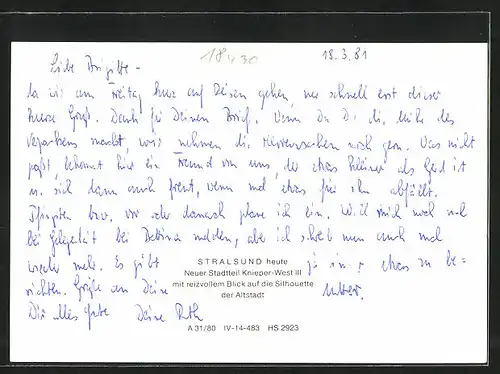 18 30
18.3.81
Liebe Brigitte -
da wir am Freitag kurz auf Reisen gehen, nur schnell erst dieser
kurze Gruß. Dank für Deinen Brief. Wenn Du Dir die Mühe des
Verpackens machst, wir nehmen die Herrensachen noch gern. Was nicht
paßt, bekommt hier ein Freund von uns, der etwas kleiner als Gerd ist
u. sich dann auch freut, wenn mal etwas für ihn abfällt.
Pfingsten bzw. vor oder danach plane ich ein. Will mich noch mal
bei Gelegenheit bei melden, aber ich schreib nun auch mal
wieder mehr. Es gibt ja immer etwas zu be-
richten. Grüße an Deine Mutter.
Dir alles Gute Deine Ruth
STRALSUND heute
Neuer Stadtteil Knieper-West III
mit reizvollem Blick auf die Silhouette
der Altstadt
A 31/80 IV-14-483 HS 2923